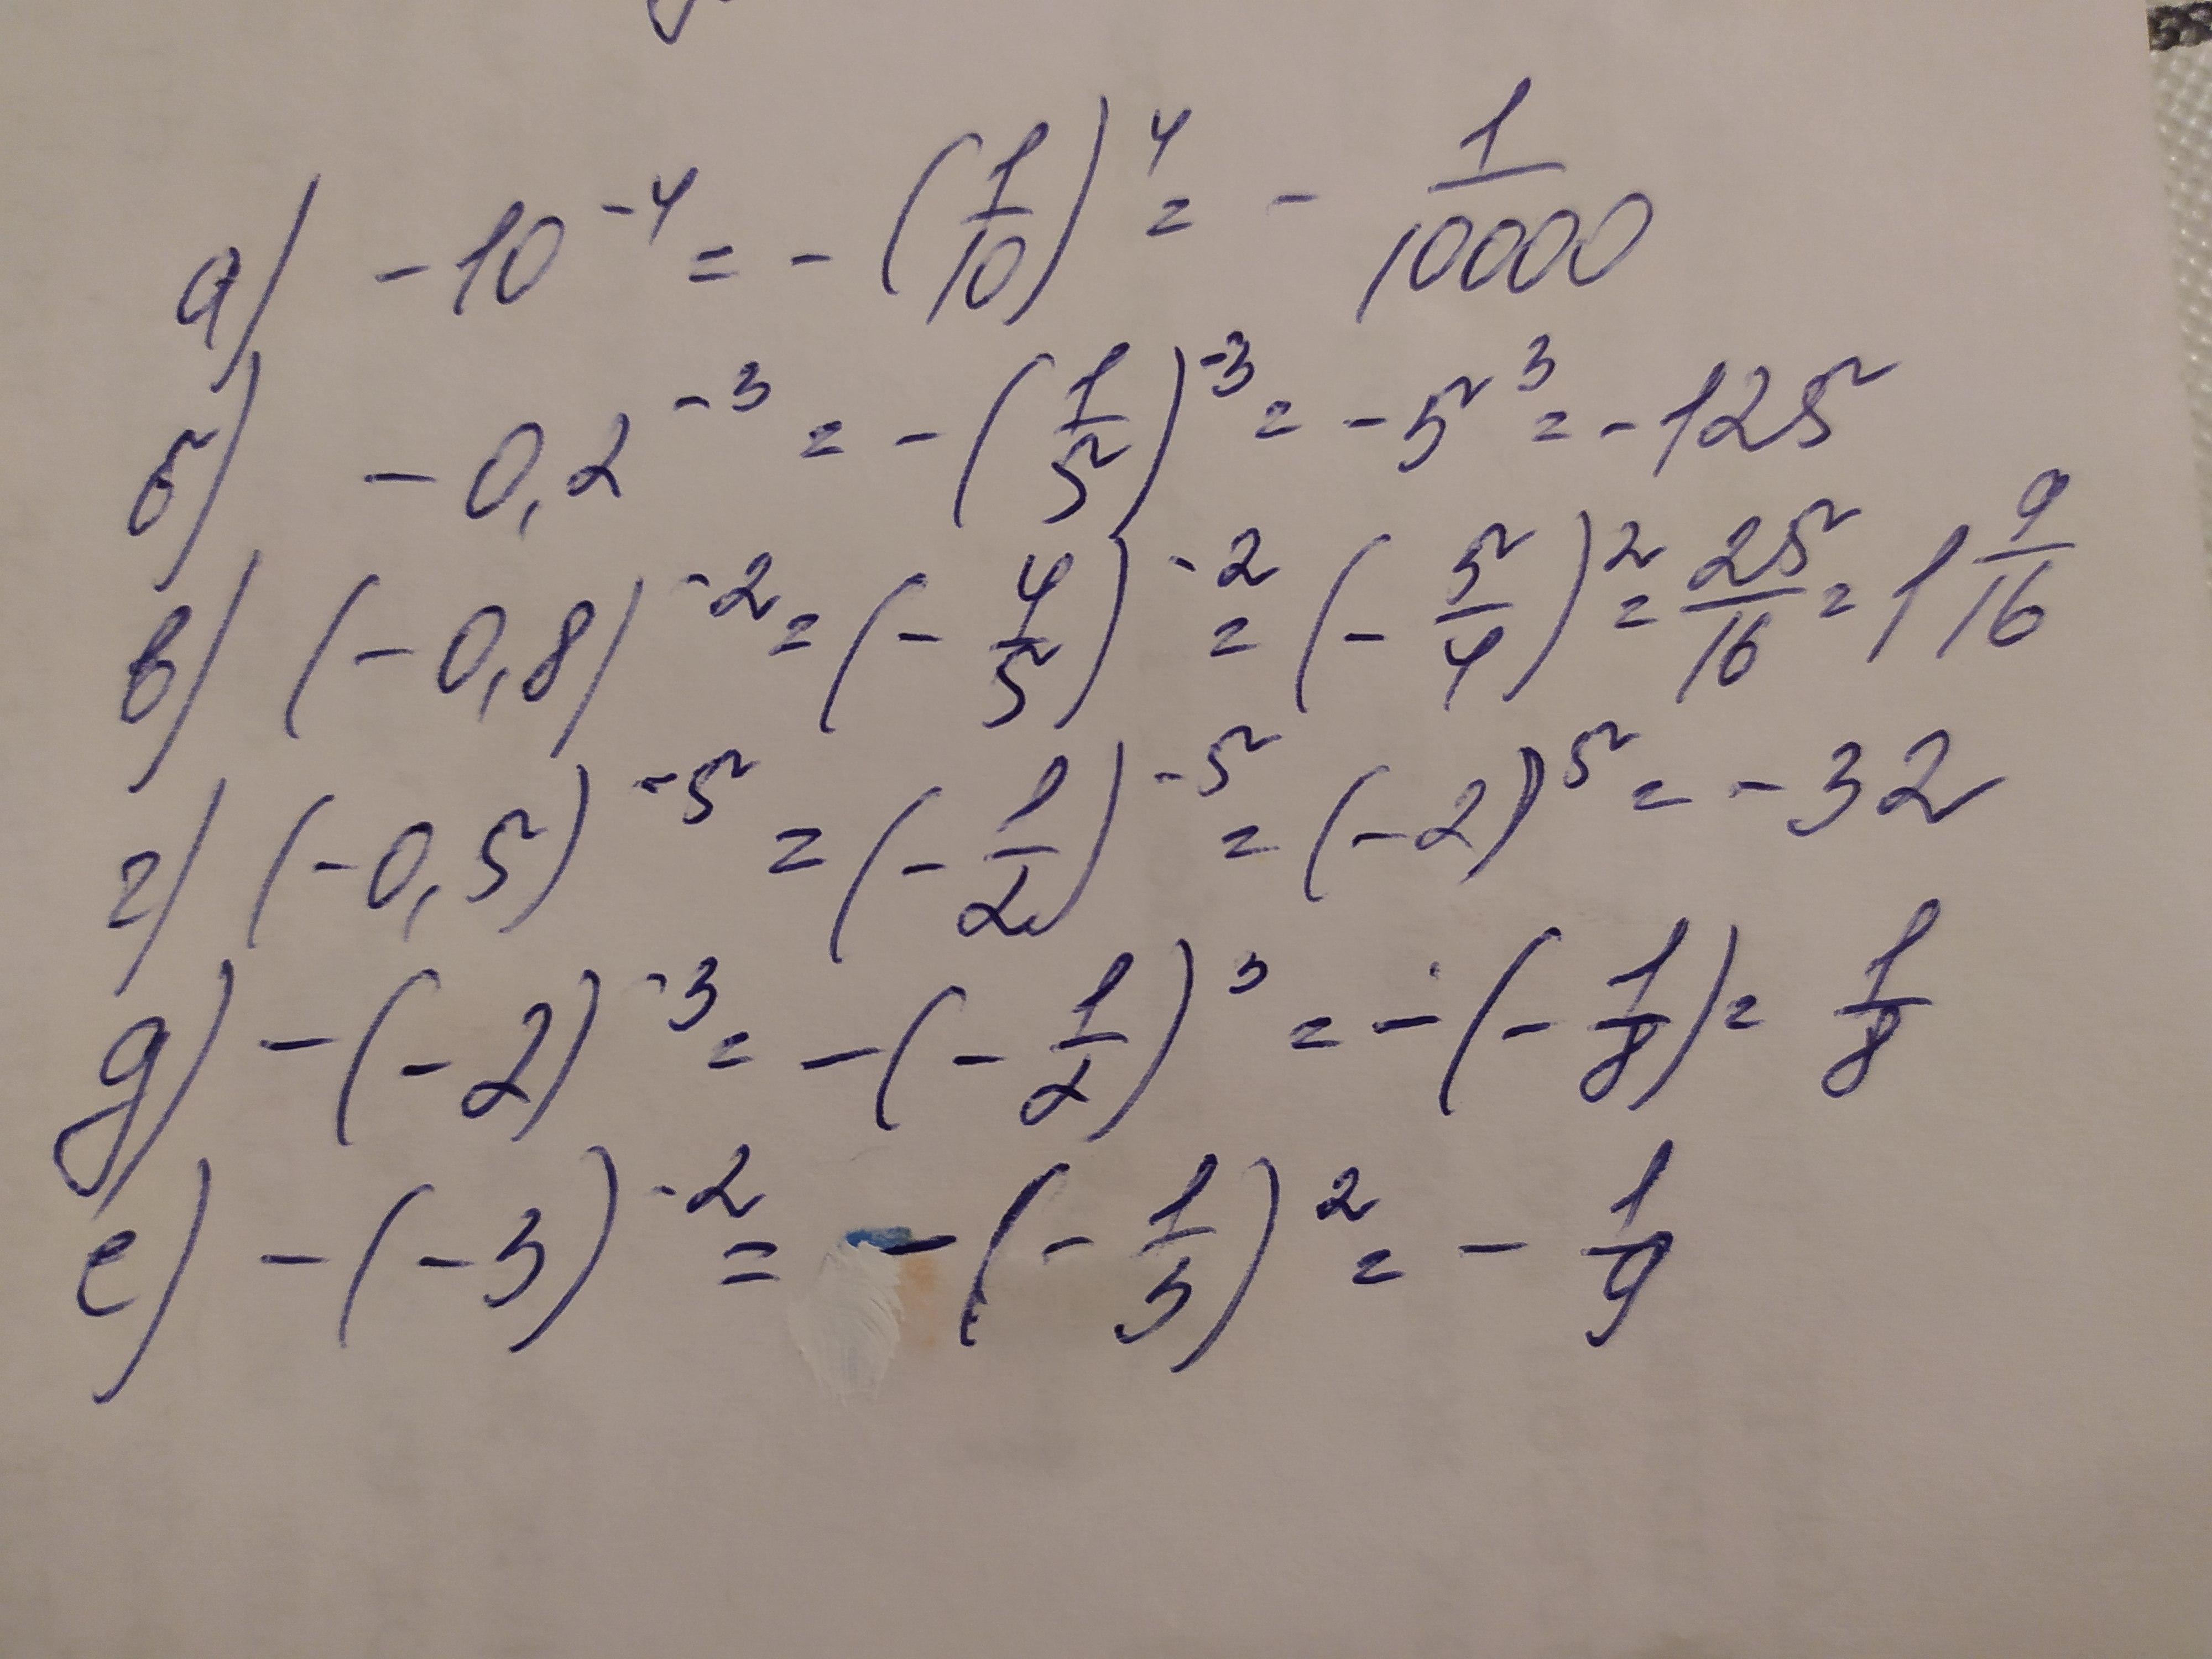 а) -10^{-4} = -(1/10)^4 = - 1/10000
б) -0,2^{-3} = -(1/5)^{-3} = -5^3 = -125
в) (-0,8)^{-2} = (-4/5)^{-2} = (-5/4)^2 = 25/16 = 1 9/16
г) (-0,5)^{-5} = (-1/2)^{-5} = (-2)^5 = -32
д) -(-2)^{-3} = -(-1/2)^3 = -(-1/8) = 1/8
е) -(-3)^{-2} = -(-1/3)^2 = - 1/9